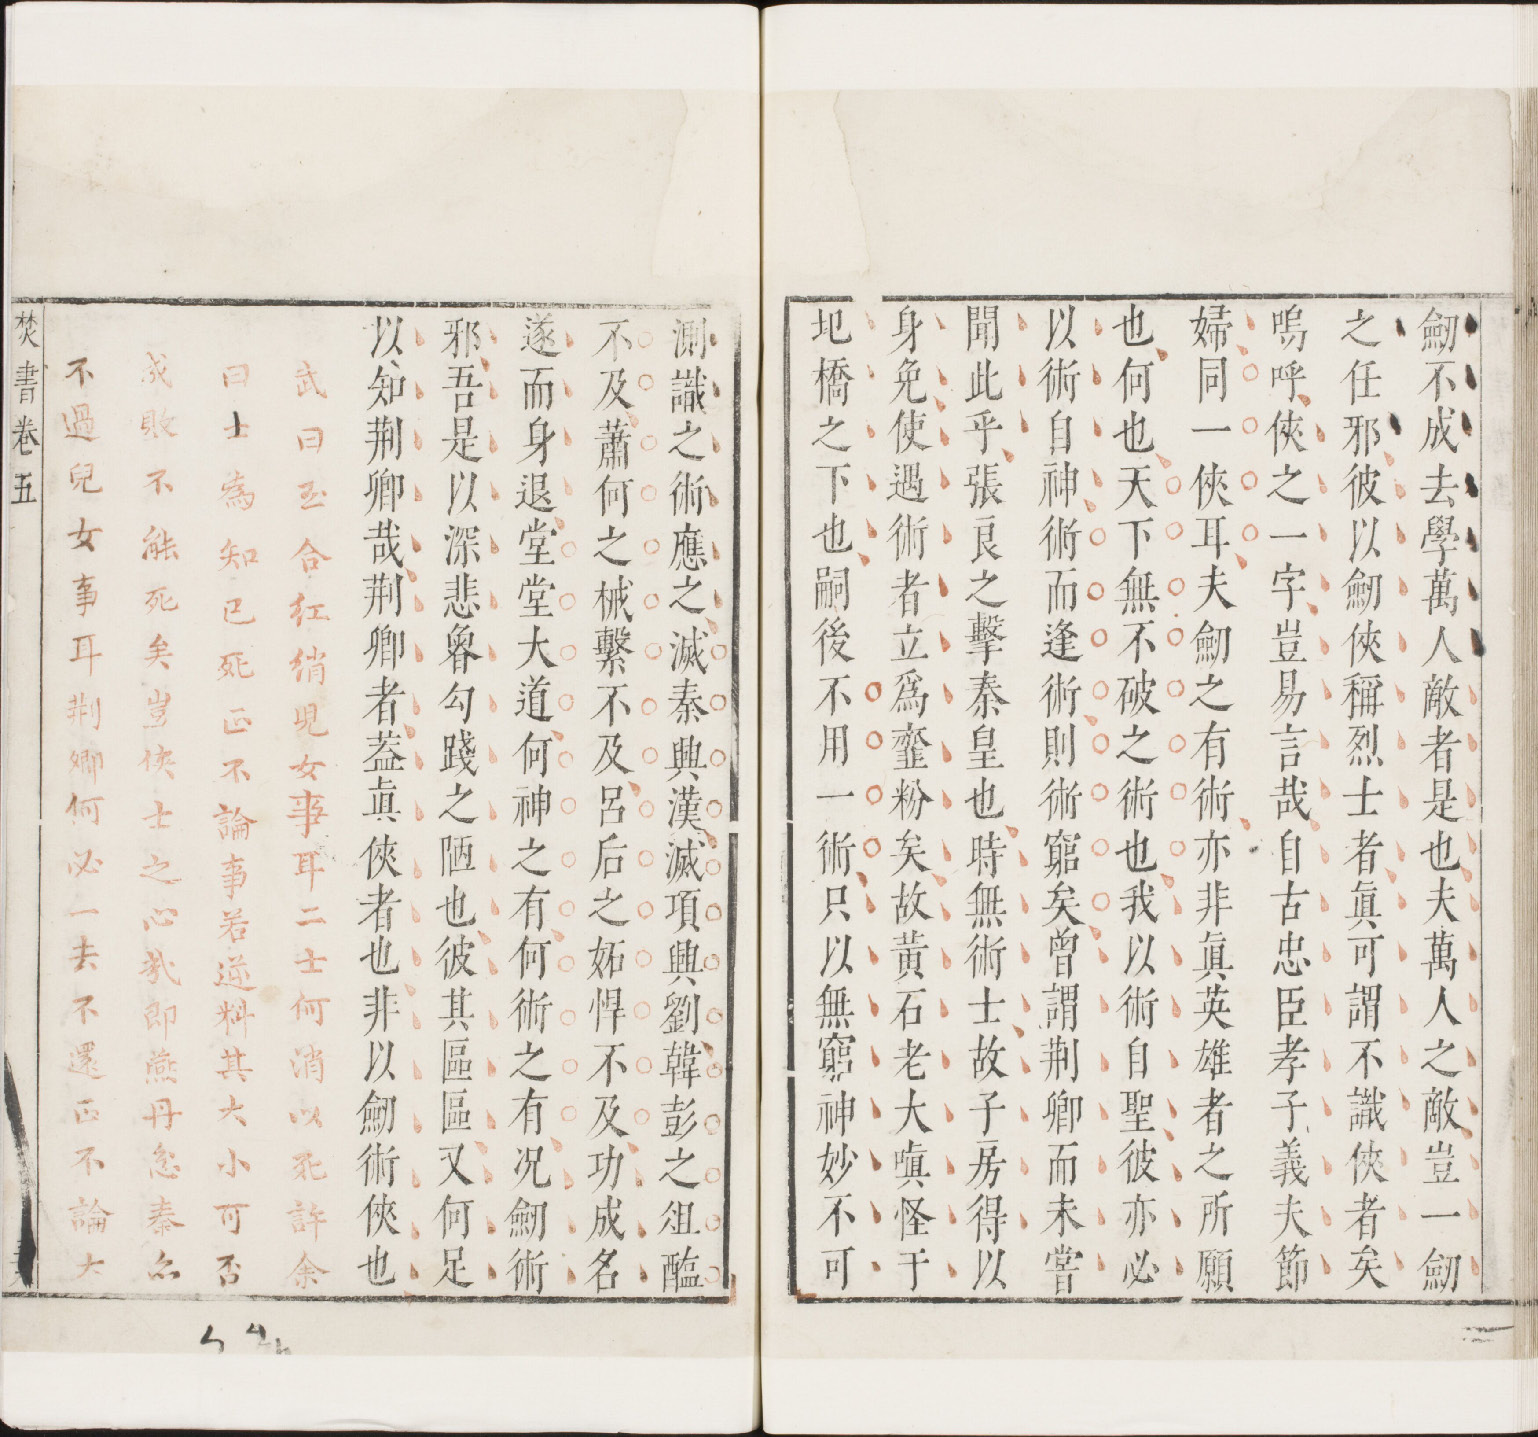 劒不成去學萬人敵者是也夫萬人之敵豈一劒
之任邪彼以劒俠稱烈士者眞可謂不識俠者矣
嗚呼俠之一字豈易言哉自古忠臣孝子義夫節
婦同一俠耳夫劒之有術亦非眞英雄者之所願
也何也天下無不破之術也我以術自聖彼亦必
以術自神術而逢術則術窮矣曾謂荆卿而未嘗
聞此乎張良之擊秦皇也時無術士故子房得以
身免使遇術者立爲虀粉矣故黃石老大嗔怪于
圯橋之下也嗣後不用一術只以無窮神妙不可
測識之術應之滅秦興漢滅項興劉韓彭之俎醢
不及蕭何之械繫不及呂后之妬悍不及功成名
遂而身退堂堂大道何神之有何術之有况劒術
邪吾是以深悲魯勾踐之陋也彼其區區又何足
以知荆卿哉荆卿者蓋眞俠者也非以劒術俠也
武曰玉合紅綃兒女事耳二士何消以死許余
曰士爲知己死正不論事若逆料其大小可否
成敗不能死矣豈俠士之心哉即燕丹
不過兒女事耳荆卿何必一去不還正不論大
焚書卷五